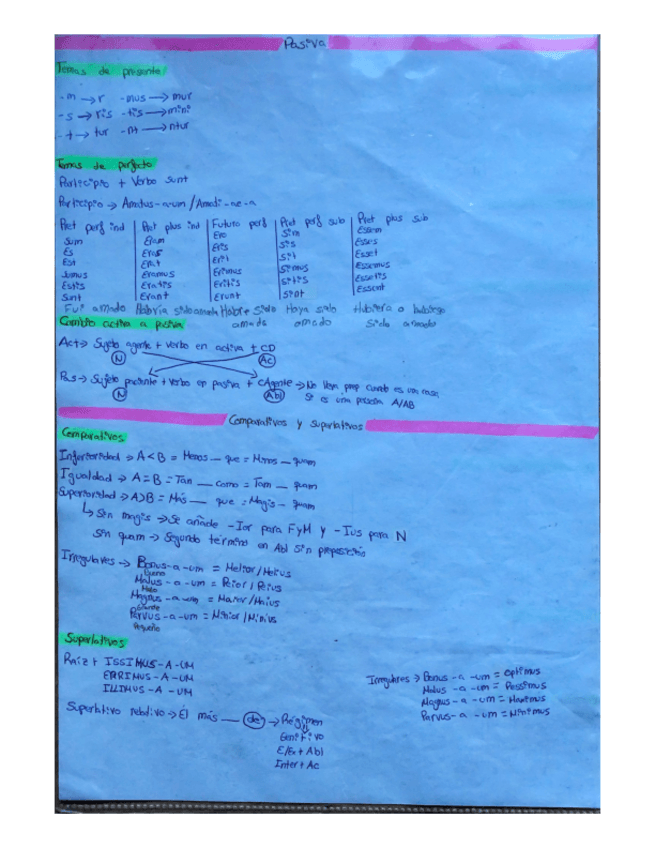 Pasiva
Temas de presente
-m → r   -mus → mur
-s → ris   -tis → mini
-t → tur   -nt → ntur
Temas de perfecto
Participio + Verbo sunt
Participio → Amatus-a-um / Amati-ae-a
Pret perf ind | Pret plus ind | Futuro perf | Pret perf sub | Pret plus sub
Sum | Eram | Ero | Sim | Essem
Es | Eras | Eris | Sis | Esses
Est | Erat | Erit | Sit | Esset
Sumus | Eramus | Erimus | Simus | Essemus
Estis | Eratis | Eritis | Sitis | Essetis
Sunt | Erant | Erunt | Sint | Essent
Fui amado   Habría sido amado   Habré sido amado   Haya sido amado   Hubiera o hubiese sido amado
Cambio activa a pasiva
Act → Sujeto agente + Verbo en activa + CD
N   Ac
Pas → Sujeto paciente + Verbo en pasiva + CAgente → No lleva prep cuando es una cosa
N   Abl   Si es una persona A/AB
Comparativos y superlativos
Comparativos
Inferioridad → A < B = Menos — que = Minus — quam
Igualdad → A = B = Tan — como = Tam — quam
Superioridad → A > B = Más — que = Magis — quam
↳ Sin magis → Se añade -Ior para F y M y -Ius para N
Sin quam → Segundo término en Abl sin preposición
Irregulares → Bonus-a-um = Melior/Melius
Bueno
Malus-a-um = Peior/Peius
Malo
Magnus-a-um = Maior/Maius
Grande
Parvus-a-um = Minior/Minius
Pequeño
Superlativos
Raíz + ISSIMUS-A-UM
ERRIMUS-A-UM
ILLIMUS-A-UM
Irregulares → Bonus-a-um = Optimus
Malus-a-um = Pessimus
Magnus-a-um = Maximus
Parvus-a-um = Minimus
Superlativo relativo → El más — de → Régimen
Genitivo
E/Ex + Abl
Inter + Ac